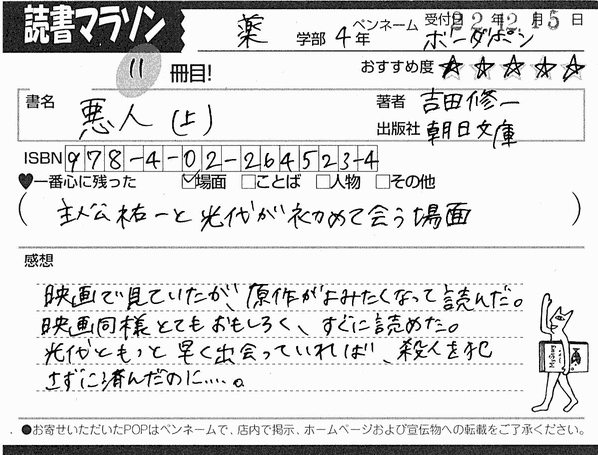 読書マラソン
薬 学部 4年 ペンネーム ボーダポン 受付 22年2月15日
11冊目!
おすすめ度 ☆☆☆☆☆
書名 悪人(上)
著者 吉田修一
出版社 朝日文庫
ISBN 978-4-02-264523-4
♥一番心に残った ☑場面 □ことば □人物 □その他
(主人公祐一と光代が初めて会う場面)
感想
映画で見ていたが、原作がよみたくなって読んだ。
映画同様とてもおもしろく、すぐに読めた。
光代ともっと早く出会っていれば、殺人を犯
さずに済んだのに…。
●お寄せいただいたPOPはペンネームで、店内で掲示、ホームページおよび宣伝物への転載をご了承ください。